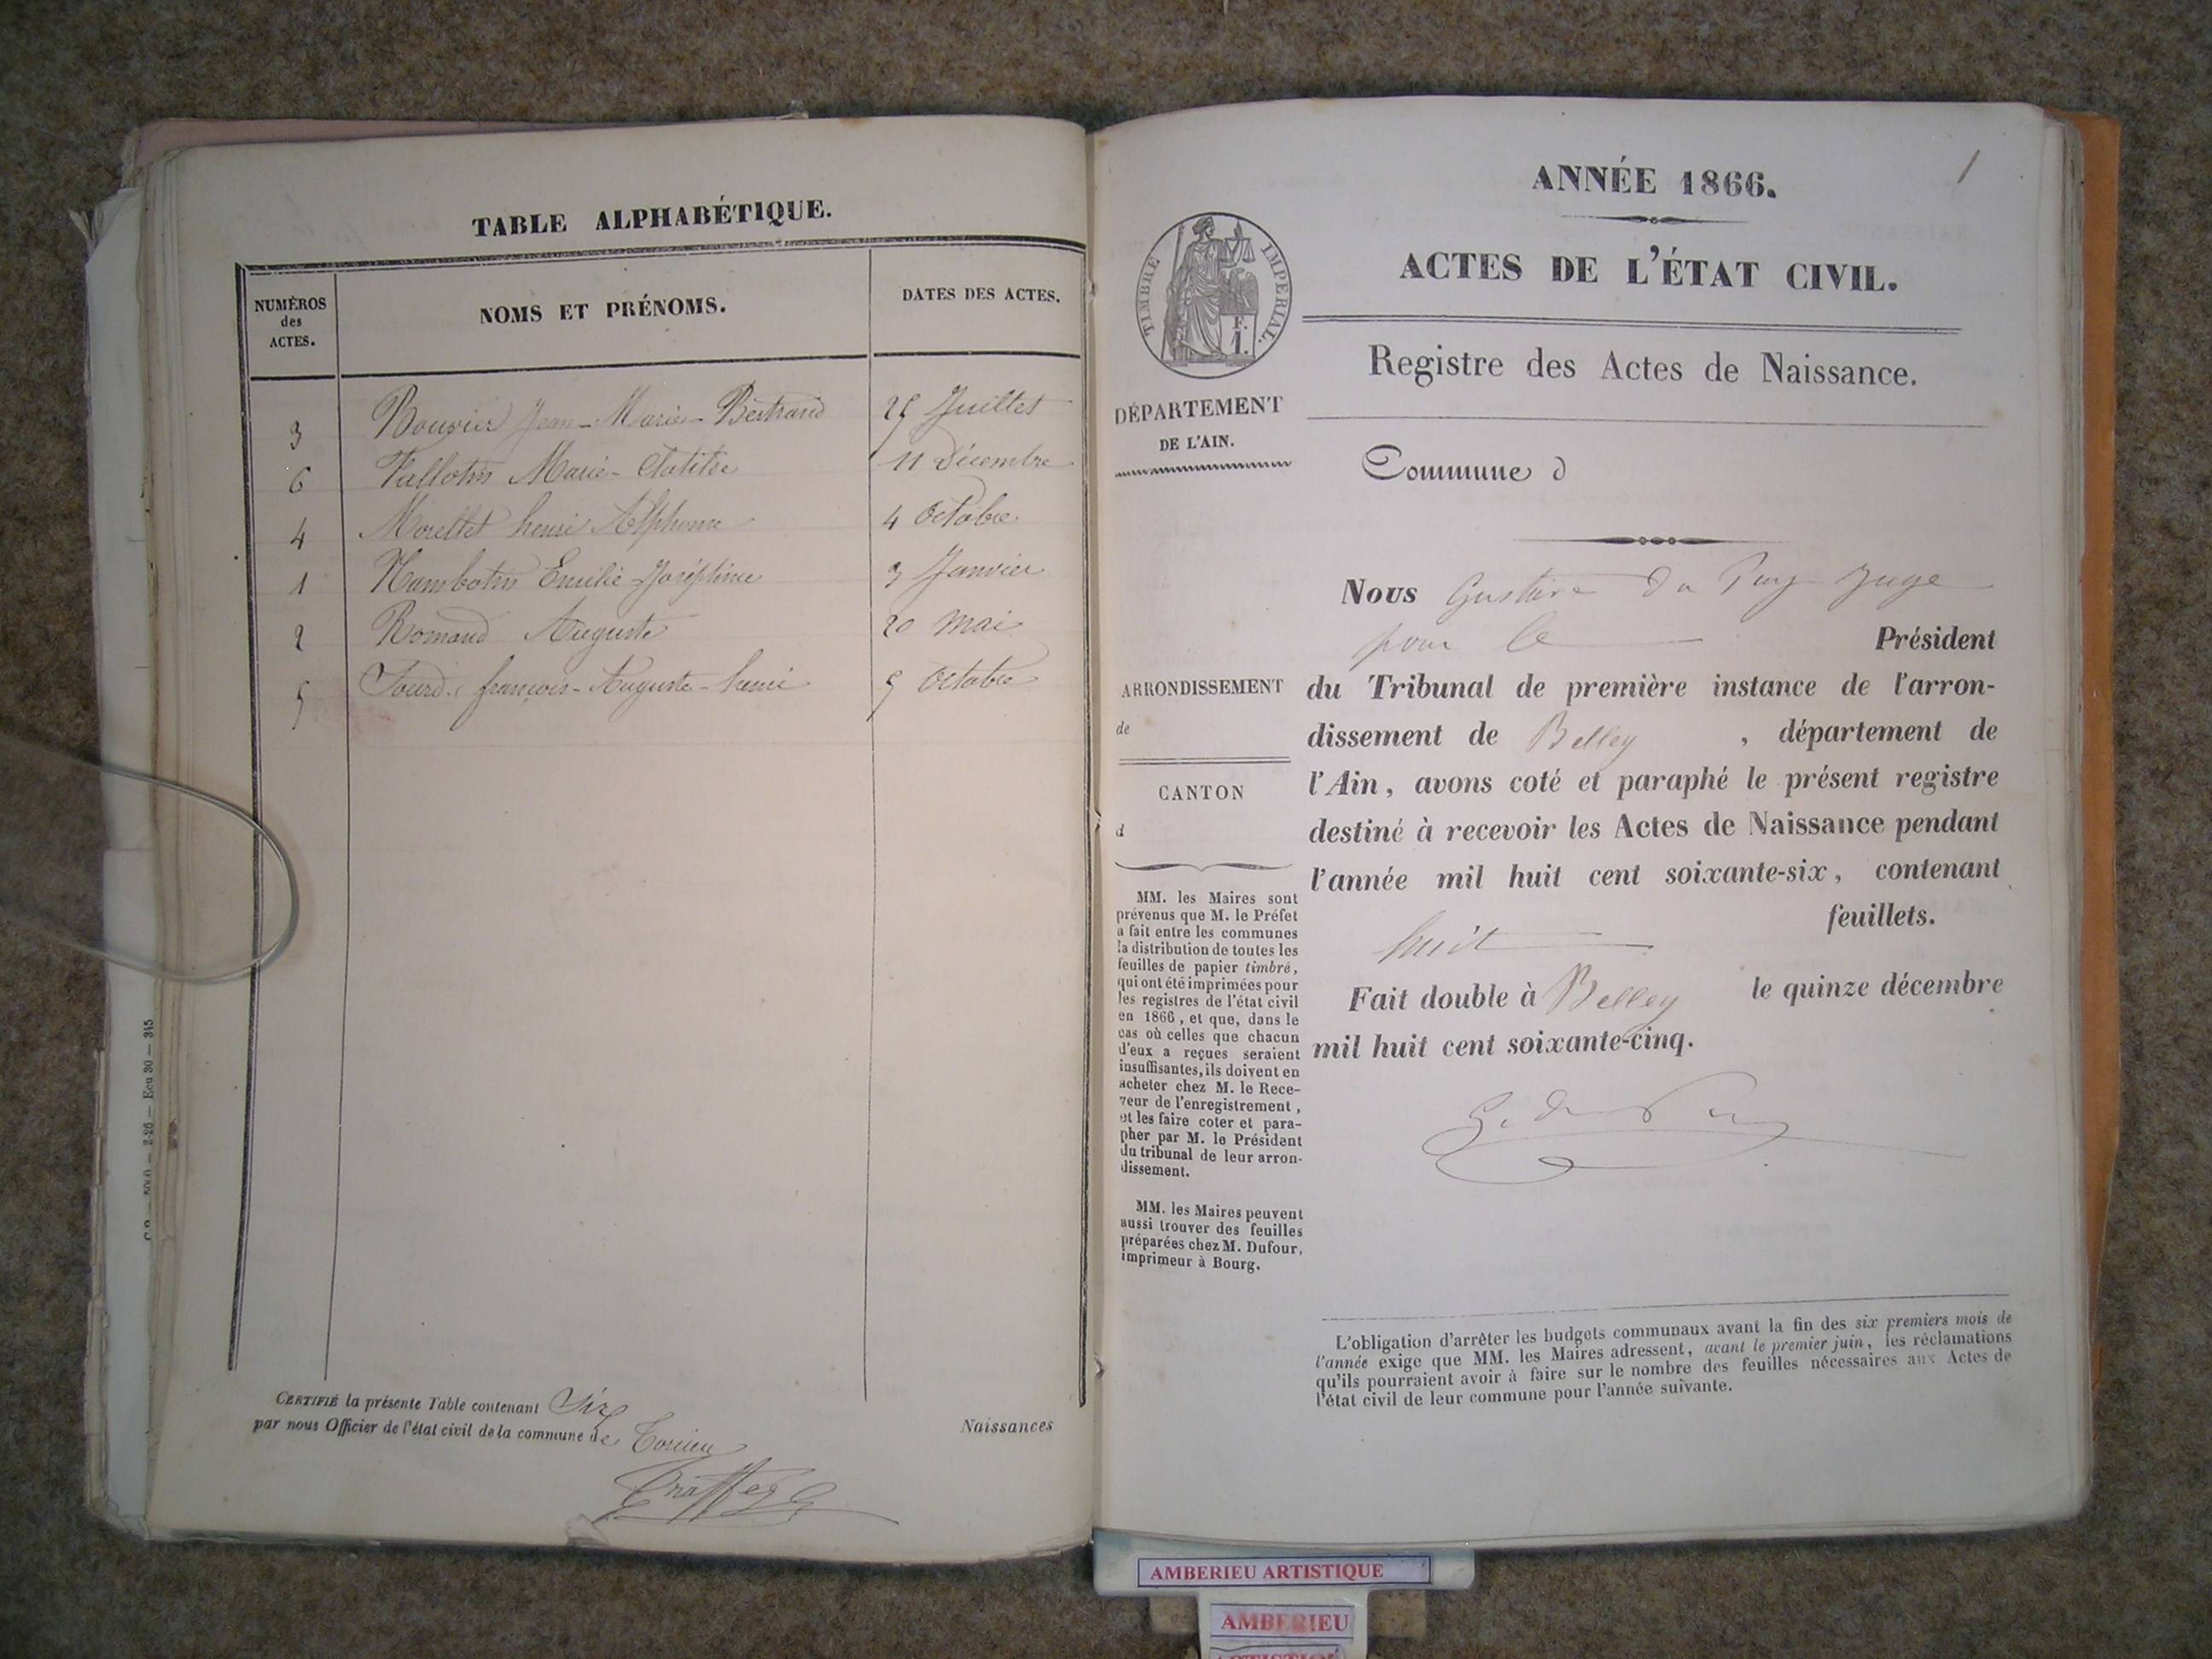 TABLE ALPHABÉTIQUE.
NUMÉROS
des
ACTES.
NOMS ET PRÉNOMS.
DATES DES ACTES.
3 Bouvier Jean-Marie-Bertrand 25 Juillet
6 Marie- 11 Décembre
4 Morellet henri Alphonse 4 Octobre
1 Emilie Joséphine 3 Janvier
2 Romand Auguste 20 mai
5 françois-Auguste-henri 5 Octobre
CERTIFIÉ la présente Table contenant Six
Naissances
par nous Officier de l'état civil de la commune de Torcieu
C.P. — 5000 — 2-26 — Ecu 30 — 345
1
ANNÉE 1866.
ACTES DE L'ÉTAT CIVIL.
TIMBRE IMPERIAL.
F.
1.
Registre des Actes de Naissance.
DÉPARTEMENT
DE L'AIN.
Commune d
Nous Gustave Du Puy Juge
pour le Président
ARRONDISSEMENT
de
du Tribunal de première instance de l'arron-
dissement de Belley , département de
CANTON
d
l'Ain, avons coté et paraphé le présent registre
destiné à recevoir les Actes de Naissance pendant
l'année mil huit cent soixante-six, contenant
huit feuillets.
Fait double à Belley le quinze décembre
mil huit cent soixante-cinq.
G. du Puy
MM. les Maires sont
prévenus que M. le Préfet
a fait entre les communes
la distribution de toutes les
feuilles de papier timbré,
qui ont été imprimées pour
les registres de l'état civil
en 1866, et que, dans le
cas où celles que chacun
d'eux a reçues seraient
insuffisantes, ils doivent en
acheter chez M. le Rece-
veur de l'enregistrement,
et les faire coter et para-
pher par M. le Président
du tribunal de leur arron-
dissement.
MM. les Maires peuvent
aussi trouver des feuilles
préparées chez M. Dufour,
imprimeur à Bourg.
L'obligation d'arrêter les budgets communaux avant la fin des six premiers mois de
l'année exige que MM. les Maires adressent, avant le premier juin, les réclamations
qu'ils pourraient avoir à faire sur le nombre des feuilles nécessaires aux Actes de
l'état civil de leur commune pour l'année suivante.
AMBERIEU ARTISTIQUE
AMBERIEU
ARTISTIQUE